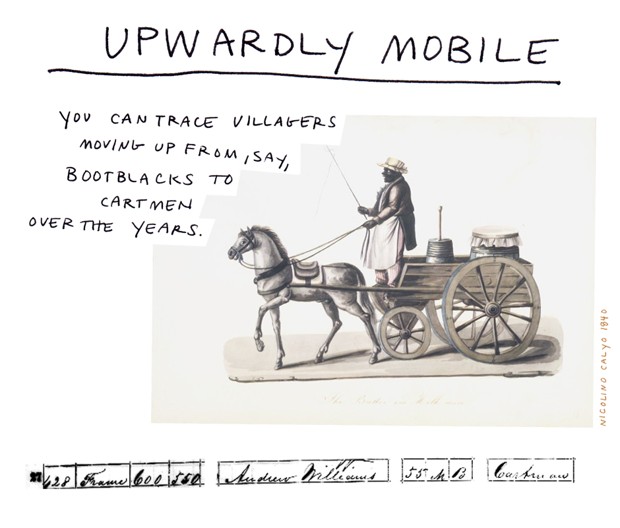 UPWARDLY MOBILE
YOU CAN TRACE VILLAGERS
MOVING UP FROM, SAY,
BOOTBLACKS TO
CARTMEN
OVER THE YEARS.
NICOLINO CALYO 1840
428 Frame 600 550 Andrew Williams 55 M B Cartman